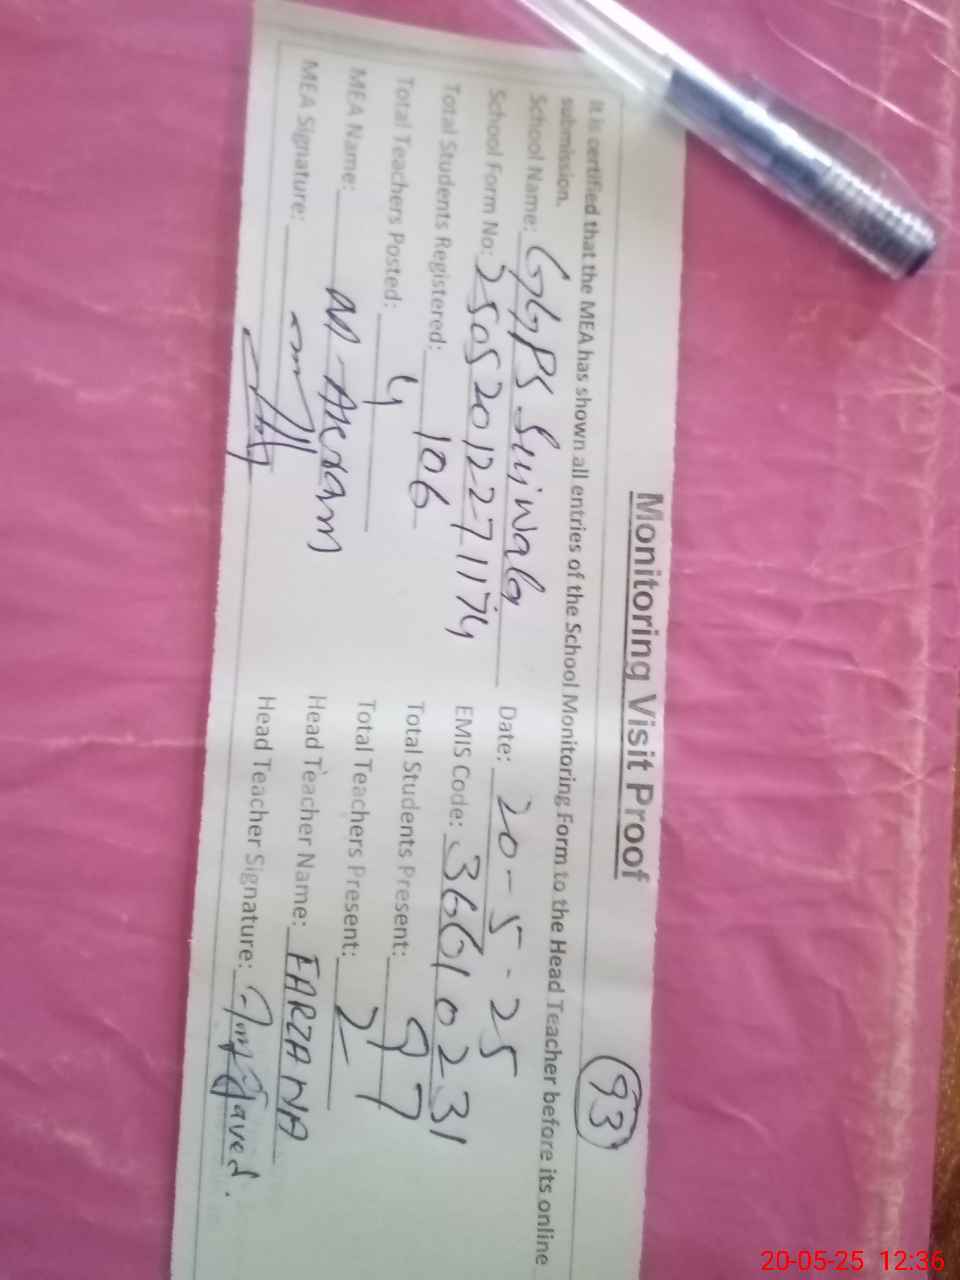 Monitoring Visit Proof
93
It is certified that the MEA has shown all entries of the School Monitoring Form to the Head Teacher before its online
submission.
School Name: GGPS Date: 20-5-25
School Form No: 25052012271174 EMIS Code: 36610231
Total Students Registered: 106 Total Students Present: 97
Total Teachers Posted: 4 Total Teachers Present: 2
MEA Name: M-Akram Head Teacher Name: FARZANA
MEA Signature: Head Teacher Signature: Javed.
20-05-25 12:36